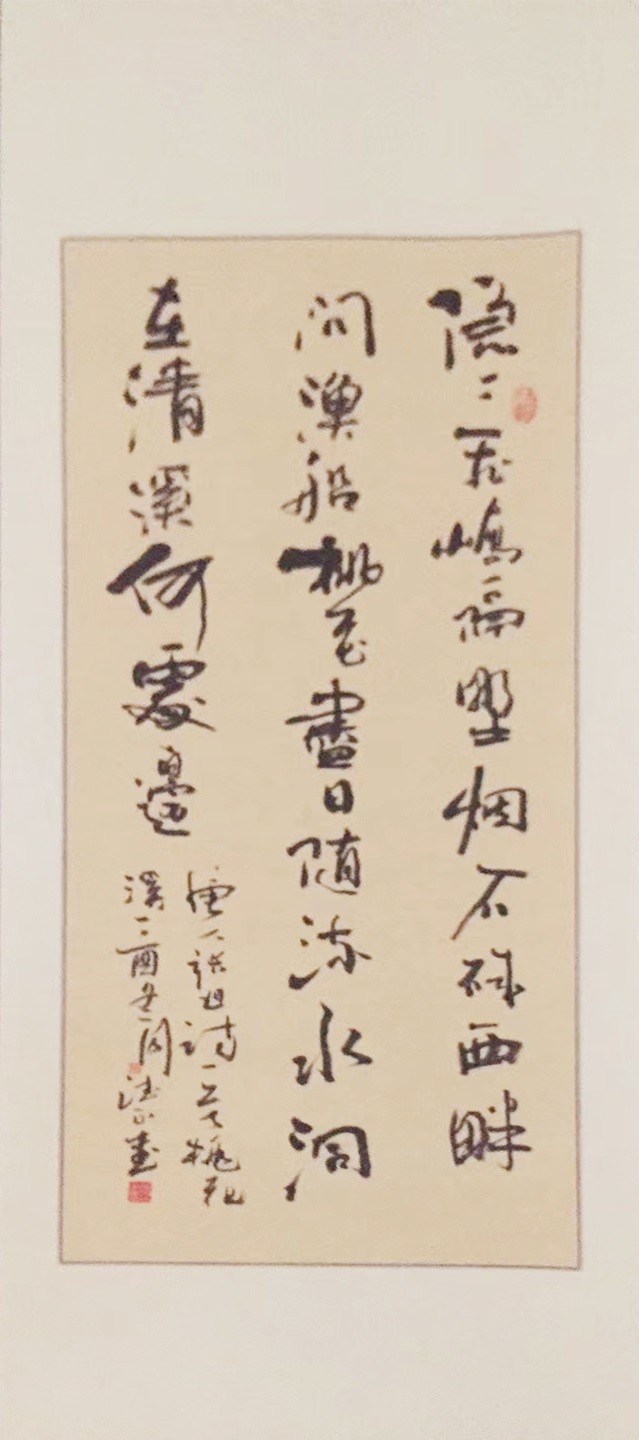 隐〻飛嶠隔野烟石矶西畔
问漁船桃花盡日随流水洞
在清溪何處邊
唐人張旭詩一首桃花
溪丁酉冬月書